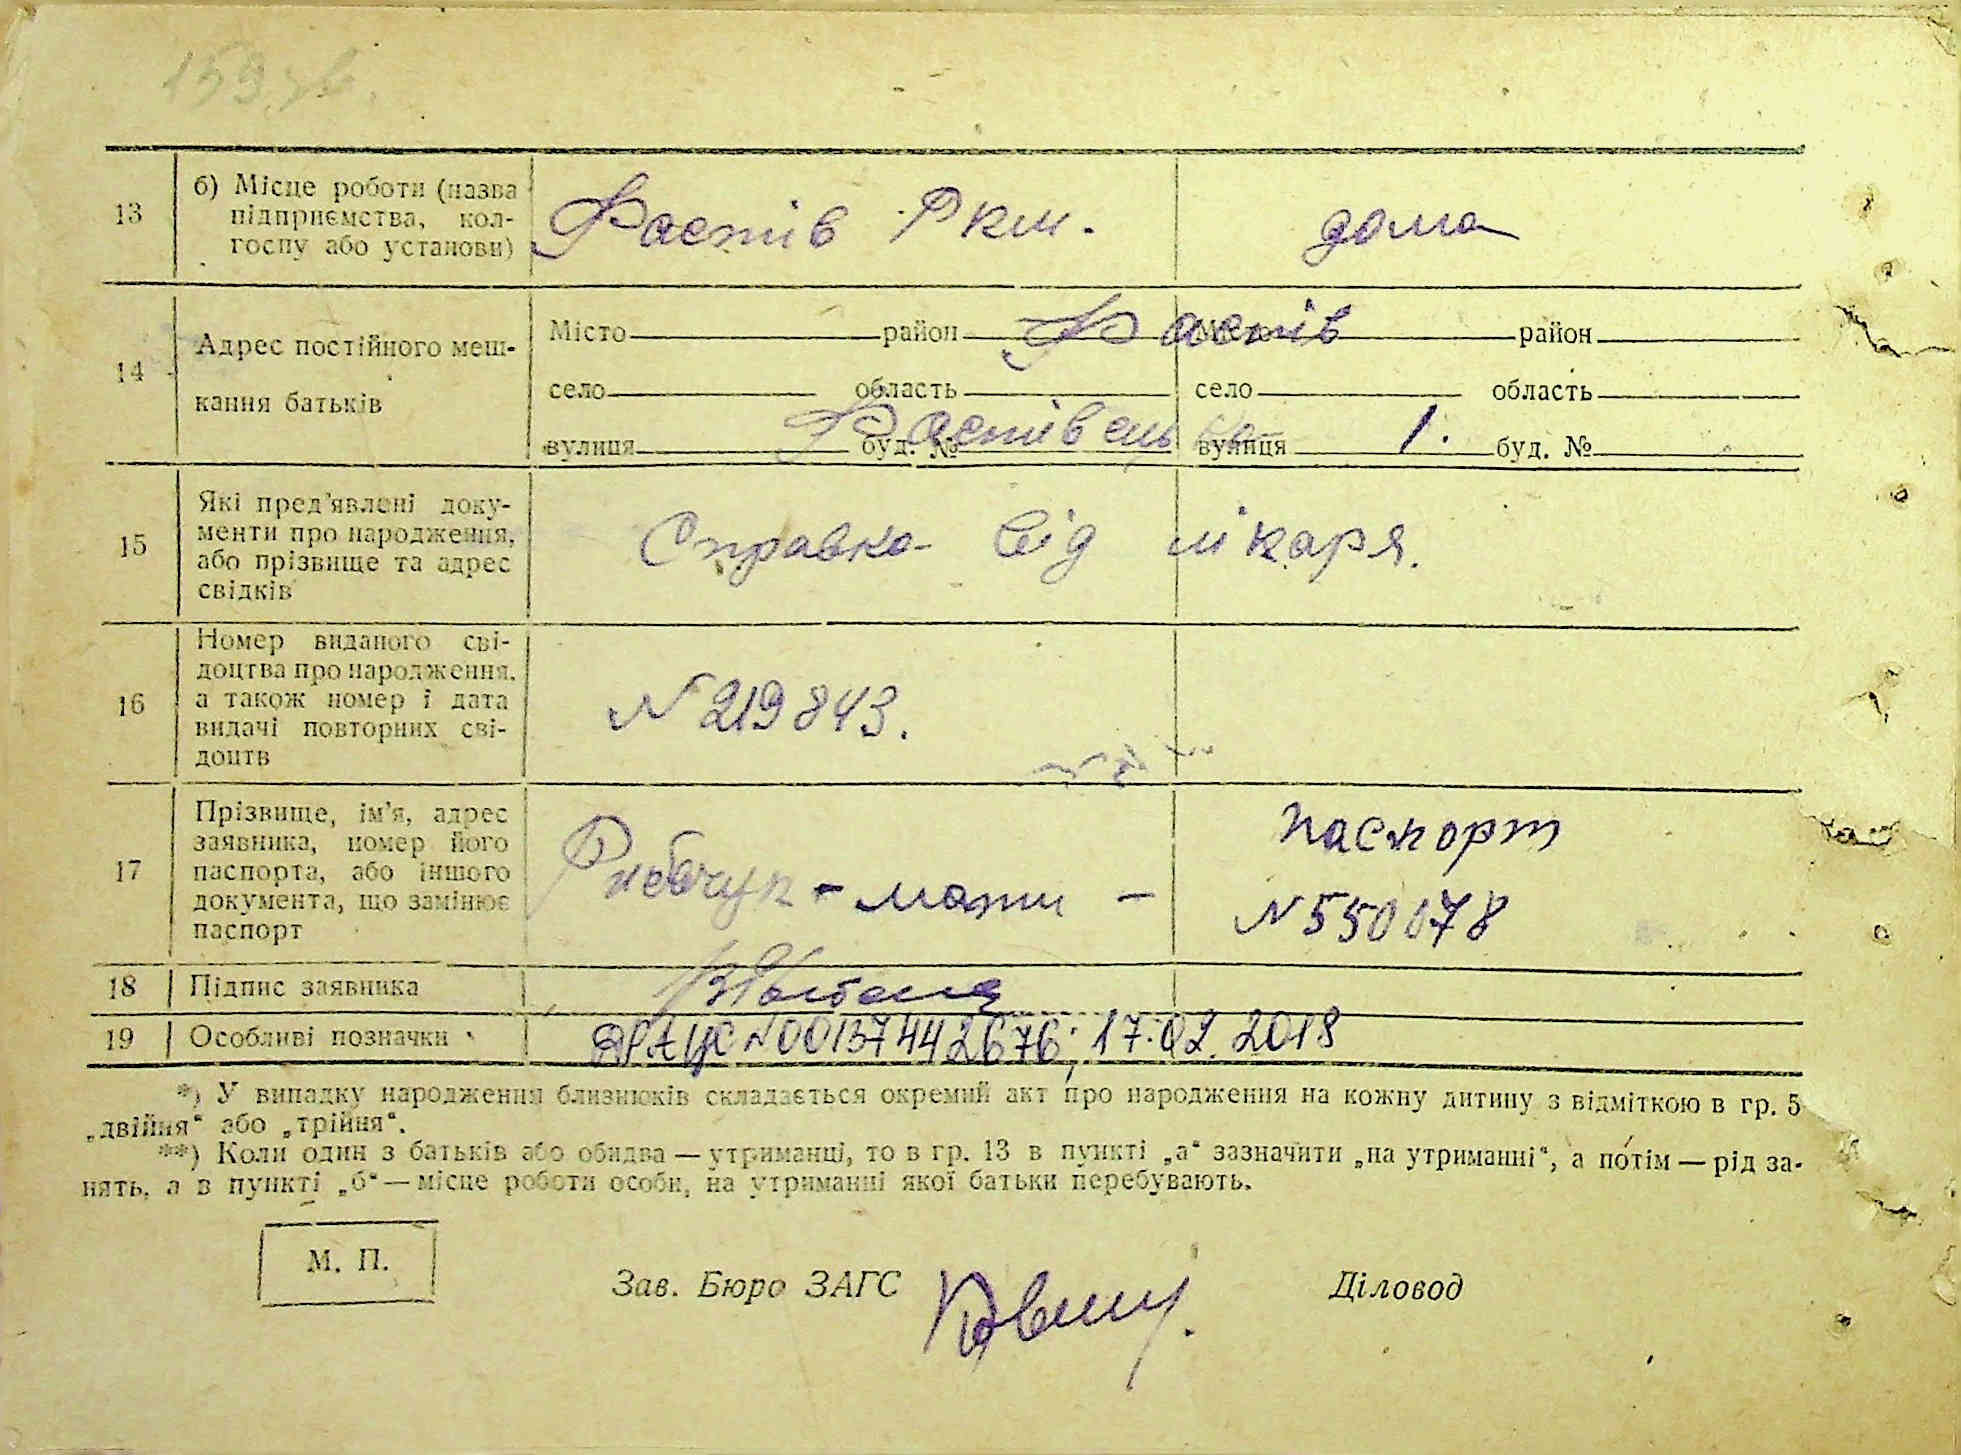 159 зв.
13
б) Місце роботи (назва
підприємства, кол-
госпу або установи)
Фастів Ркм.
дома
14
Адрес постійного меш-
кання батьків
Місто район Фастів Місто район
село область село область
вулиця буд. № Фастівська вулиця 1. буд. №
15
Які пред'явлені доку-
менти про народження,
або прізвище та адрес
свідків
Справка від лікаря.
16
Номер виданого сві-
доцтва про народження,
а також номер і дата
видачі повторних сві-
доцтв
N 219843.
17
Прізвище, ім'я, адрес
заявника, номер його
паспорта, або іншого
документа, що замінює
паспорт
Рибачук - мати -
паспорт
N 550178
18
Підпис заявника
19
Особливі позначки
ДРАЦС N 00137442676; 17.02.2018
*) У випадку народження близнюків складається окремий акт про народження на кожну дитину з відміткою в гр. 5
„двійня“ або „трійня“.
**) Коли один з батьків або обидва — утриманці, то в гр. 13 в пункті „а“ зазначити „на утриманні“, а потім — рід за-
нять, а в пункті „б“ — місце роботи особи, на утриманні якої батьки перебувають.
М. П.
Зав. Бюро ЗАГС
Діловод